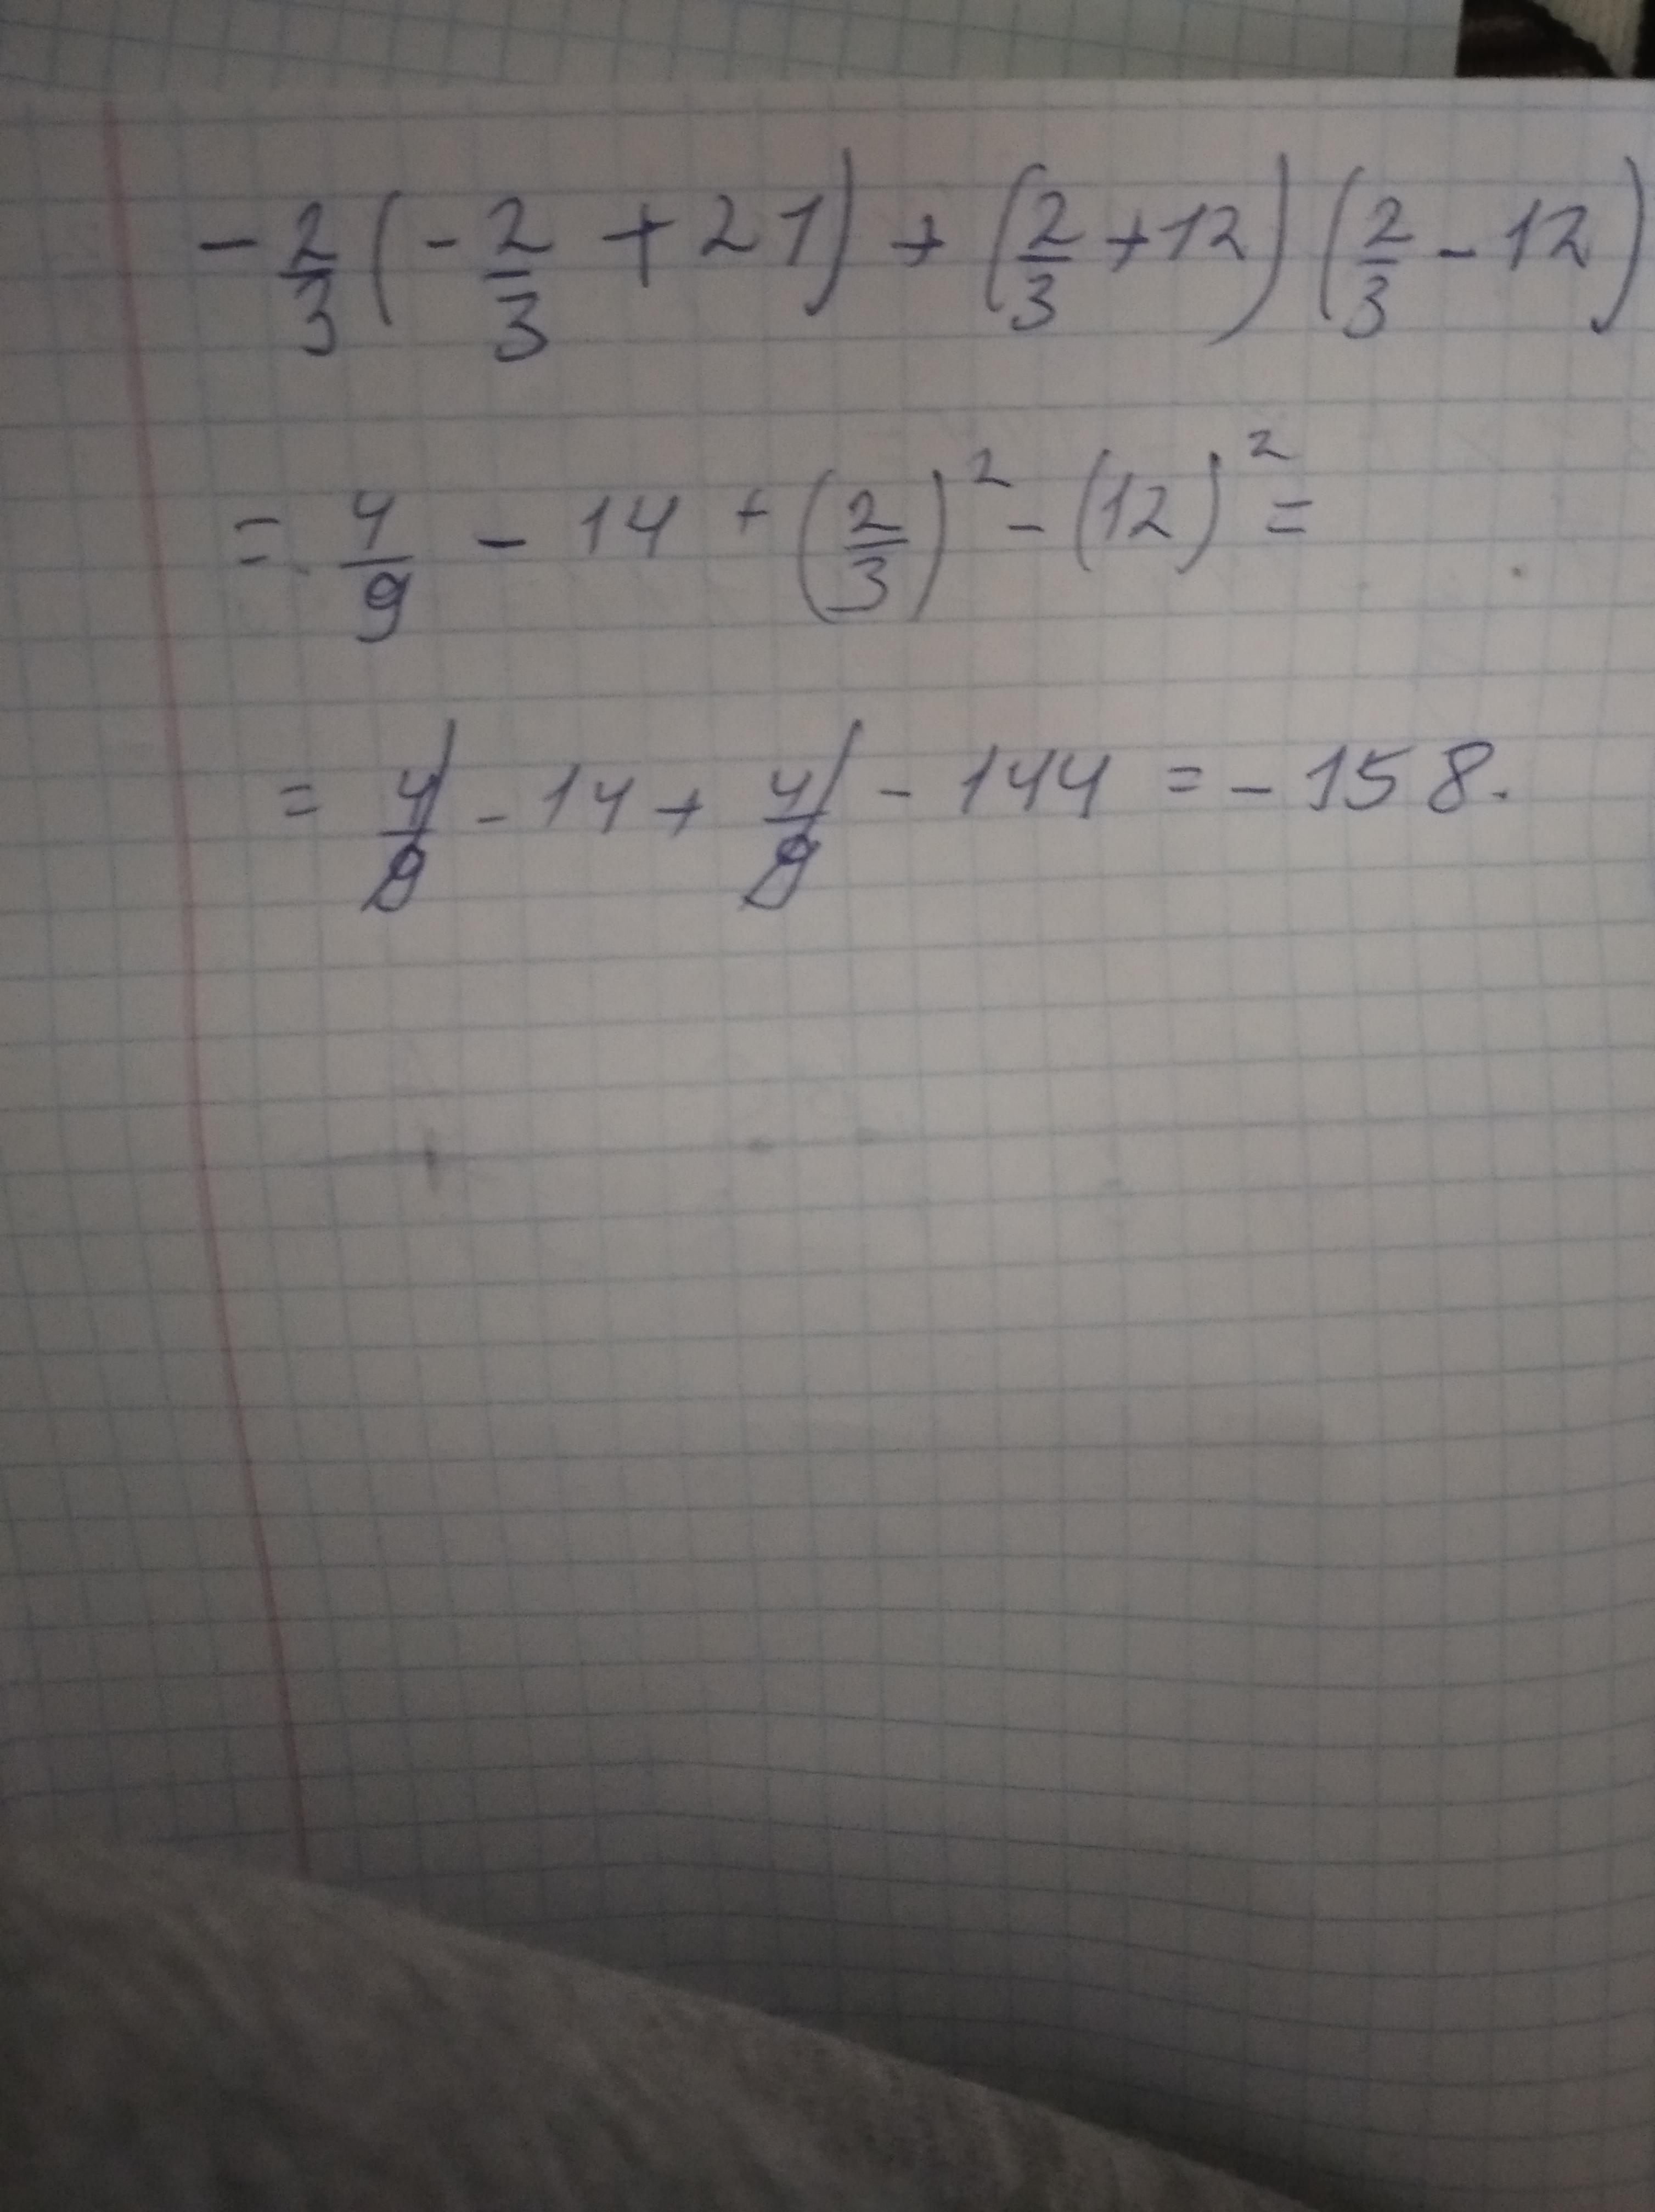 -2/3(-2/3+21)+(2/3+12)(2/3-12)
=4/9-14+(2/3)²-(12)²=
=4/9-14+4/9-144=-158.